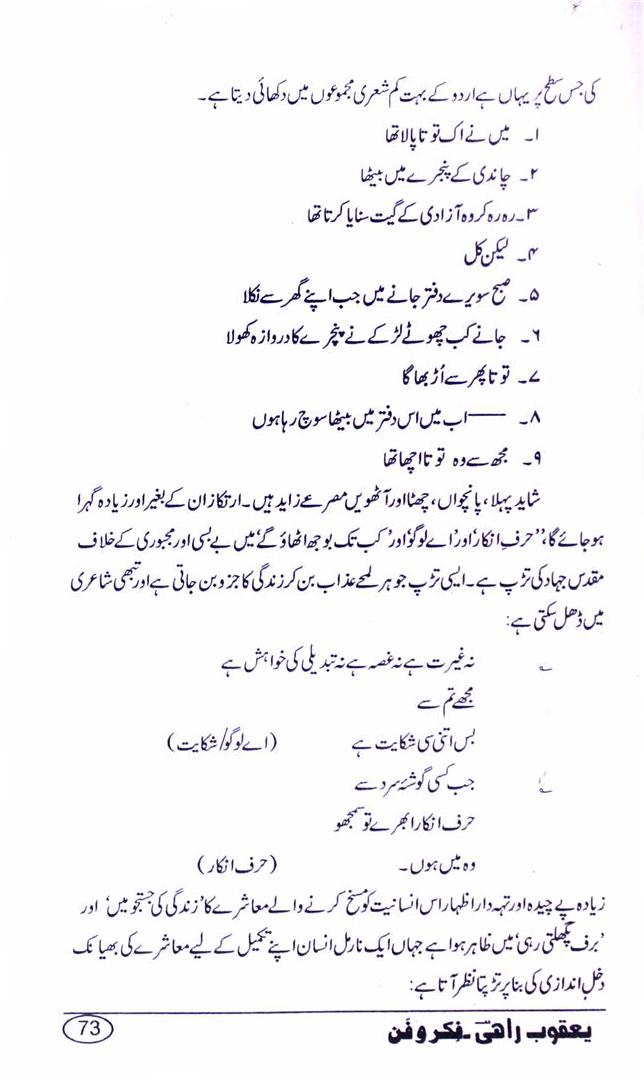 کی جس سطح پر یہاں ہے اردو کے بہت کم شعری مجموعوں میں دکھائی دیتا ہے۔
۱۔ میں نے اک توتا پالا تھا
۲۔ چاندی کے پنجرے میں بیٹھا
۳۔ رہ رہ کر وہ آزادی کے گیت سنایا کرتا تھا
۴۔ لیکن کل
۵۔ صبح سویرے دفتر جانے میں جب اپنے گھر سے نکلا
۶۔ جانے کب چھوٹے لڑکے نے پنجرے کا دروازہ کھولا
۷۔ توتا پھر سے اُڑ بھاگا
۸۔ ——اب میں اس دفتر میں بیٹھا سوچ رہا ہوں
۹۔ مجھ سے وہ توتا اچھا تھا
شاید پہلا، پانچواں، چھٹا اور آٹھویں مصرعے زاید ہیں۔ ارتکاز ان کے بغیر اور زیادہ گہرا
ہو جائے گا، ’’حرفِ انکار‘ اور ’اے لوگو‘ اور ’کب تک بوجھ اٹھاؤ گے‘ میں بے بسی اور مجبوری کے خلاف
مقدس جہاد کی تڑپ ہے۔ ایسی تڑپ جو ہر لمحے عذاب بن کر زندگی کا جزو بن جاتی ہے اور تبھی شاعری
میں ڈھل سکتی ہے:
نہ غیرت ہے نہ غصہ ہے نہ تبدیلی کی خواہش ہے
مجھے تم سے
بس اتنی سی شکایت ہے (اے لوگو/شکایت)
جب کسی گوشۂ سرد سے
حرف انکار ابھرے تو سمجھو
وہ میں ہوں۔ (حرف انکار)
زیادہ پے چیدہ اور تہہ دار اظہار اس انسانیت کو مسخ کرنے والے معاشرے کا ’زندگی کی جستجو میں‘ اور
’برف پگھلتی رہی‘ میں ظاہر ہوا ہے جہاں ایک نارمل انسان اپنے تکمیل کے لیے معاشرے کی بھیانک
دخل اندازی کی بنا پر تڑپتا نظر آتا ہے:
یعقوب راہی۔ فکر و فن
73